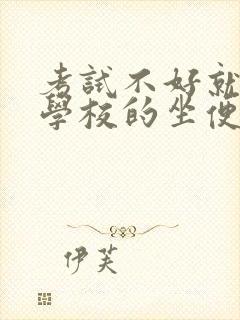 考試不好就
學校的坐便
伊芙